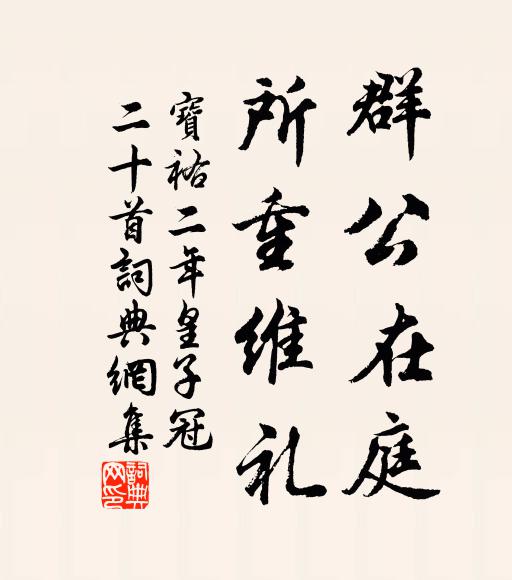 群公在庭
所重維礼
寶祐二年皇子冠
二十首詞典網集
詞典网印